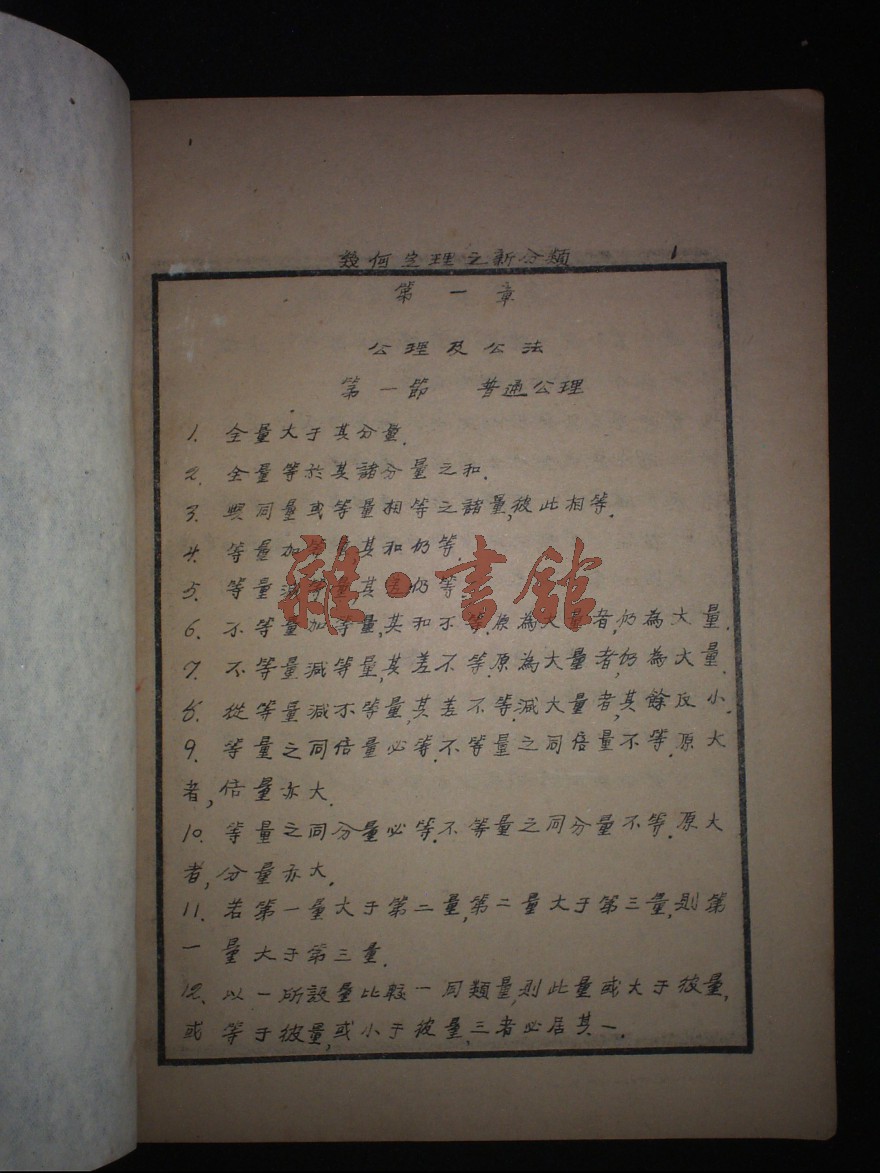 幾何定理之新分類 1
第一章
公理及公法
第一節 普通公理
1. 全量大于其分量.
2. 全量等於其諸分量之和.
3. 與同量或等量相等之諸量,彼此相等.
4. 等量加等量,其和仍等.
5. 等量減等量,其差仍等.
6. 不等量加等量,其和不等.原為大量者,仍為大量.
7. 不等量減等量,其差不等.原為大量者,仍為大量.
8. 從等量減不等量,其差不等.減大量者,其餘反小.
9. 等量之同倍量必等.不等量之同倍量不等.原大
者,倍量亦大.
10. 等量之同分量必等.不等量之同分量不等.原大
者,分量亦大.
11. 若第一量大于第二量,第二量大于第三量,則第
一量大于第三量.
12. 以一所設量比較一同類量,則此量或大于彼量,
或等于彼量,或小于彼量,三者必居其一.
雜·書館